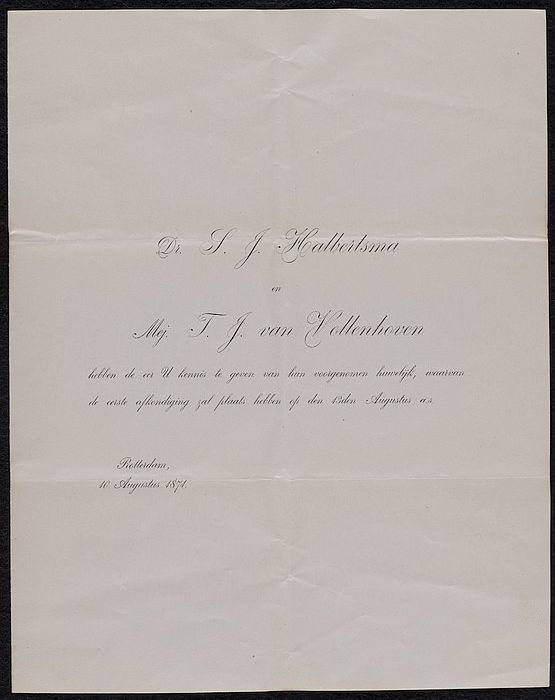 Dr. S. J. Halbertsma
en
Mej. T. J. van Vollenhoven
hebben de eer U kennis te geven van hun voorgenomen huwelijk, waarvan
de eerste afkondiging zal plaats hebben op den 13den Augustus a.s.
Rotterdam,
10 Augustus 1871.